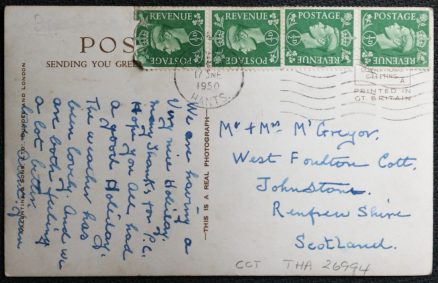 POS
SENDING YOU GREE
REVENUE
POSTAGE
REVENUE
POSTAGE
POSTAGE
REVENUE
POSTAGE
REVENUE
17 JNE
1950
HANTS.
PRINTED IN
GT. BRITAIN
THIS IS A REAL PHOTOGRAPH
We are having a
very nice Holiday.
many thanks for P.C.
Hope you all had
a good Holiday.
The weather has
been lovely. And we
are both feeling
a lot better
Mr & Mrs McGregor.
West Foulton Cott.
Johnstone.
Renfrew Shire
Scotland.
CCT THA 26994